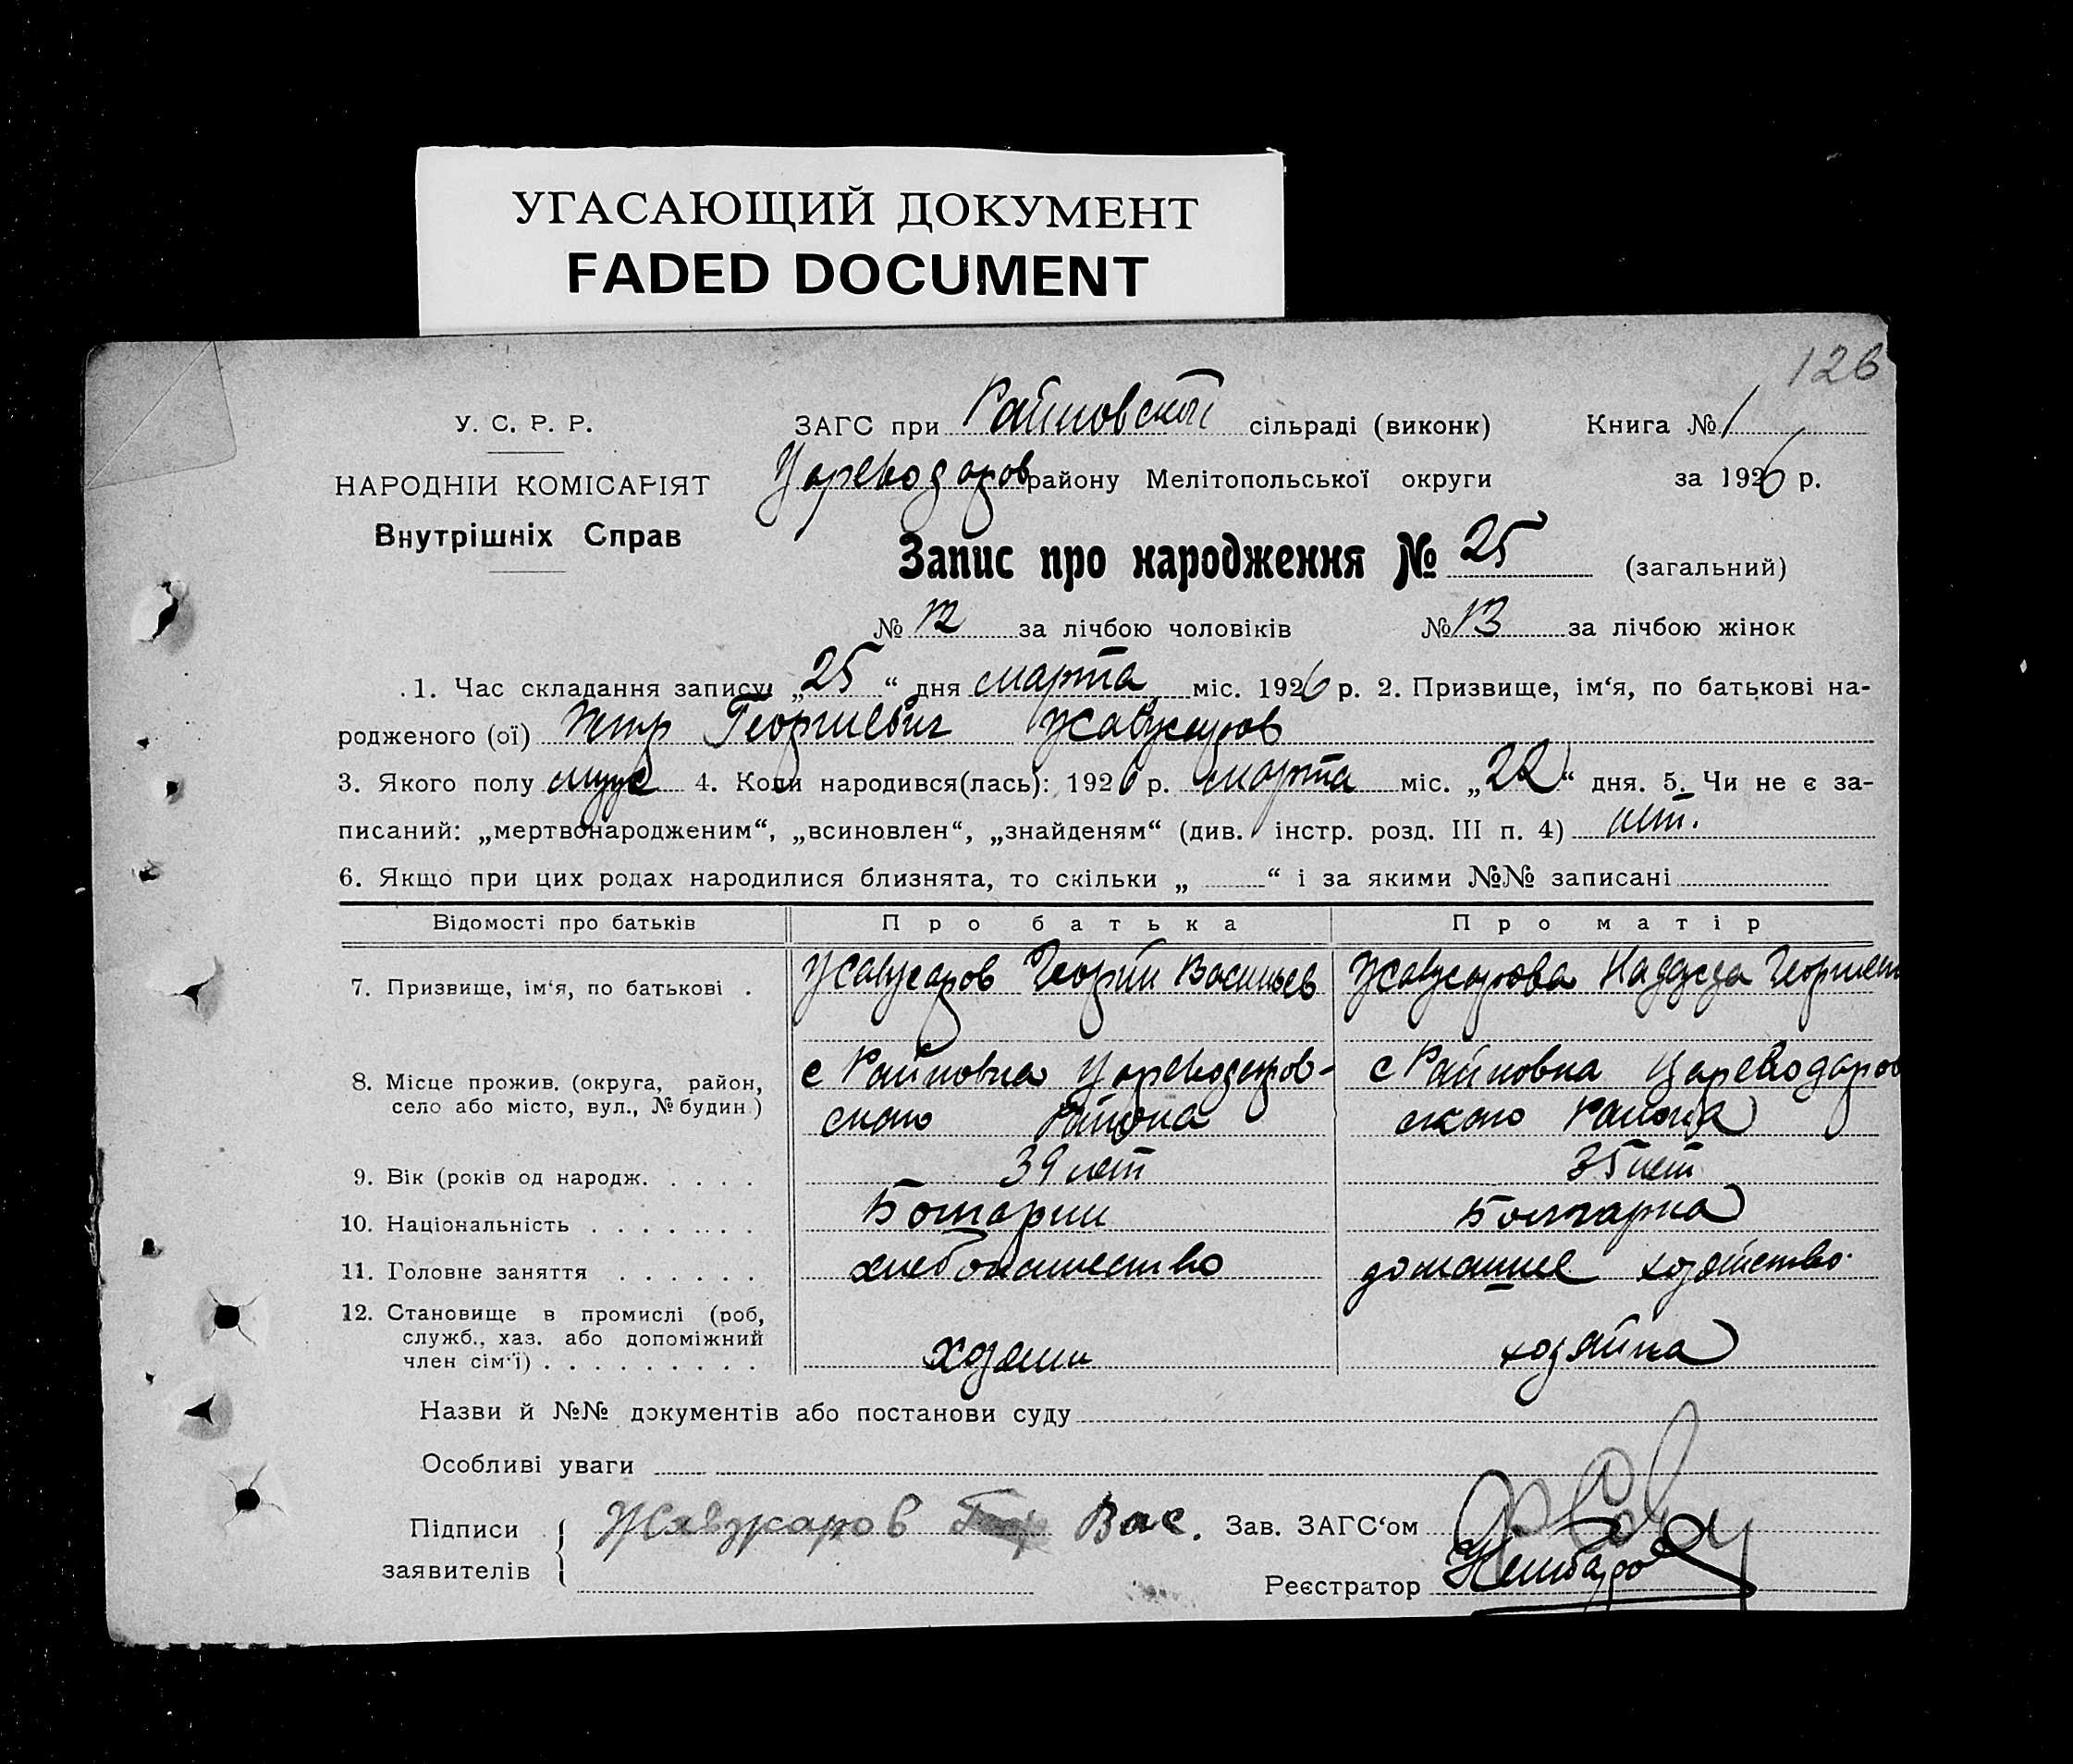 УГАСАЮЩИЙ ДОКУМЕНТ
FADED DOCUMENT
126
У. С. Р. Р.
НАРОДНІЙ КОМІСАРІЯТ
Внутрішніх Справ
ЗАГС при Райновской сільраді (виконк)
Книга № 1
Цареводаров району Мелітопольської округи
за 1926 р.
Запис про народження № 25 (загальний)
№ 12 за лічбою чоловіків № 13 за лічбою жінок
1. Час складання запису: „25“ дня марта міс. 1926 р. 2. Призвище, ім‘я, по батькові на-
родженого (ої) Петр Георгиевич Жавжаров
3. Якого полу муж 4. Коли народився(лась): 1926 р. марта міс. „22“ дня. 5. Чи не є за-
писаний: „мертвонародженим“, „всиновлен“, „знайденям“ (див. інстр. розд. III п. 4) нет.
6. Якщо при цих родах народилися близнята, то скільки „ “ і за якими №№ записані
Відомості про батьків Про батька Про матір
7. Призвище, ім‘я, по батькові . Жавжаров Георгий Васильев Жавжарова Надежда Георгиев
8. Місце прожив. (округа, район, село або місто, вул., № будин.) с Райновка Цареводаров- с Райновка Цареводаров
ского Района ского Района
9. Вік (років од народж. . . . . 39 лет 35 лет
10. Національність . . . . . . . Болгарин Болгарка
11. Головне заняття . . . . . . хлебопашество домашнее хозяйство
12. Становище в промислі (роб,
служб., хаз. або допоміжний
член сім‘ї) . . . . . . . . . хозяин хозяйка
Назви й №№ документів або постанови суду
Особливі уваги
Підписи заявителів Жавжаров Геор Вас. Зав. ЗАГС‘ом
Реєстратор